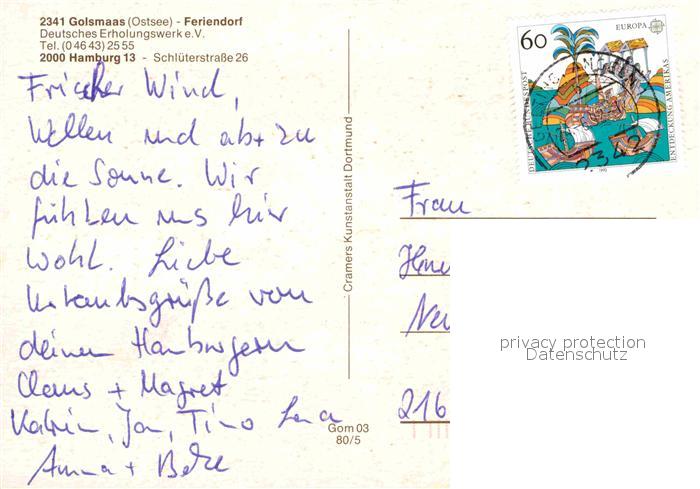 2341 Golsmaas (Ostsee) - Feriendorf
Deutsches Erholungswerk e.V.
Tel. (0 46 43) 25 55
2000 Hamburg 13 - Schlüterstraße 26
Frischer Wind,
Wellen und ab + zu
die Sonne. Wir
fühlen uns hier
wohl. Liebe
Urlaubsgrüße von
deinen Hamburgern
Claus + Magret
Katrin, Jan, Tino Lena
Anna +
Cramers Kunstanstalt Dortmund
Gom 03
80/5
60
EUROPA
DEUTSCHE BUNDESPOST
ENTDECKUNG AMERIKAS
Frau
216
privacy protection
Datenschutz